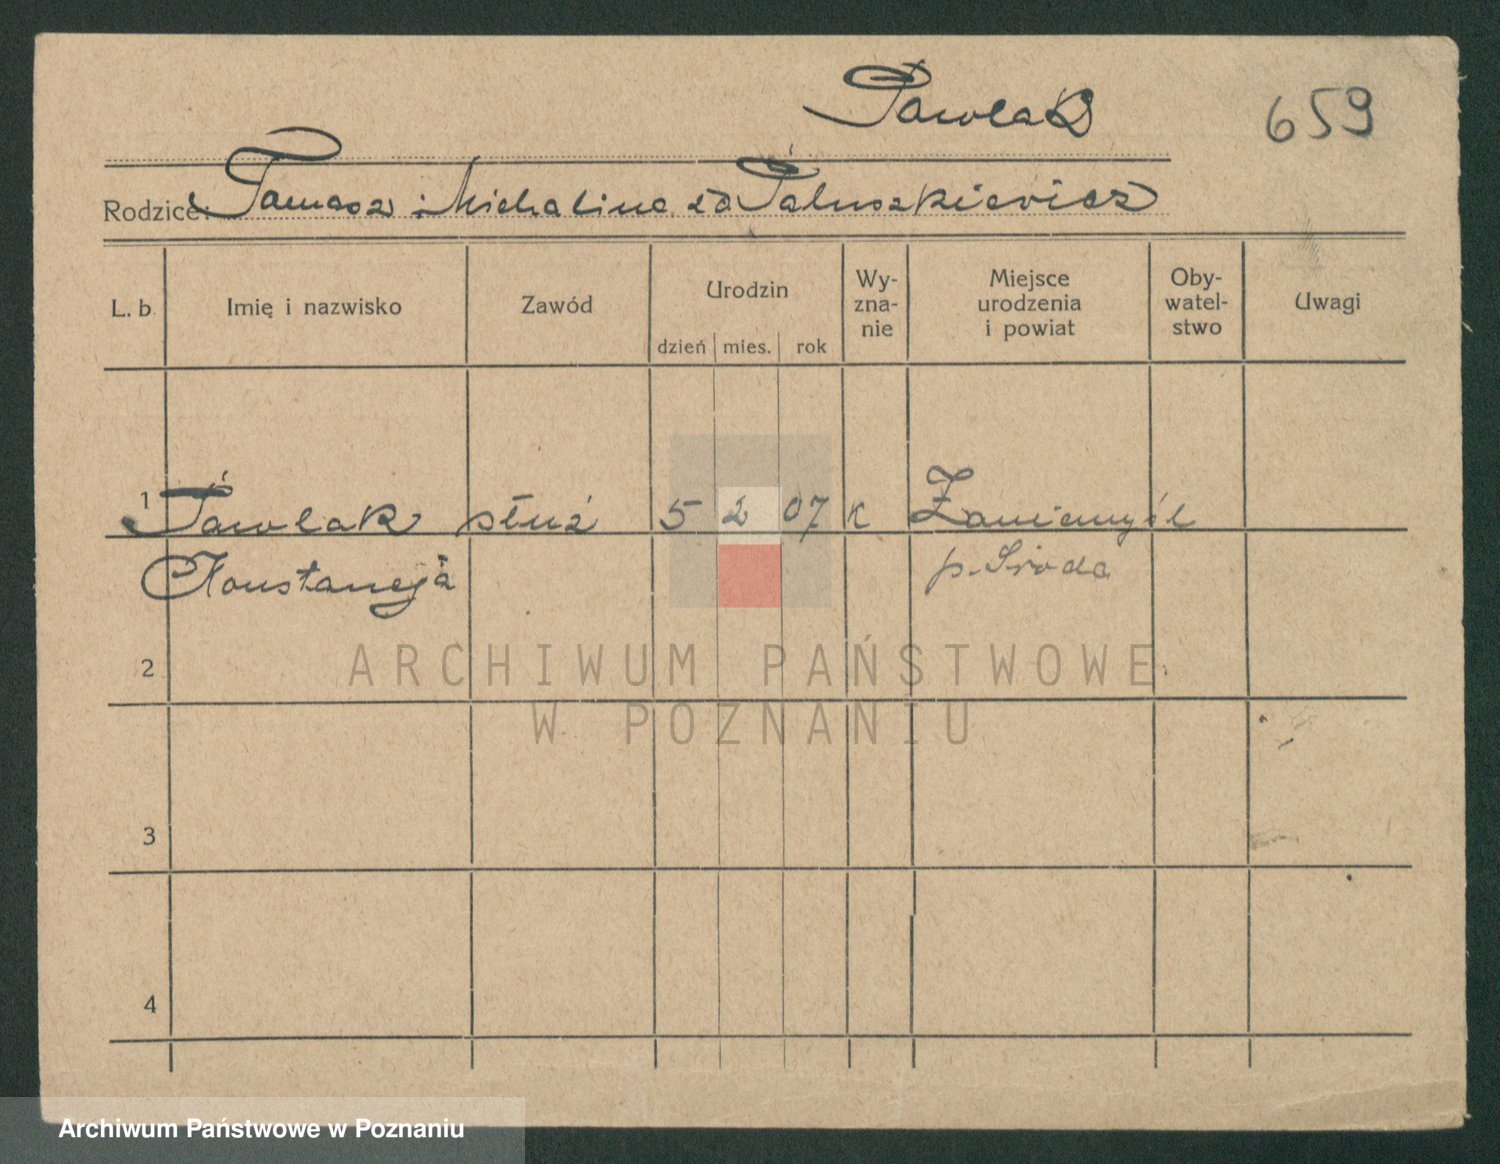 Pawlak
659
Rodzice: Tomasz i Michalina zd Paluszkiewicz
L. b. Imię i nazwisko Zawód Urodzin dzień mies. rok Wy-zna-nie Miejsce urodzenia i powiat Oby-watel-stwo Uwagi
1 Pawlak służ 5 2 07 k Zaniemyśl
Konstancja p. Środa
2
ARCHIWUM PAŃSTWOWE
W POZNANIU
3
4
Archiwum Państwowe w Poznaniu